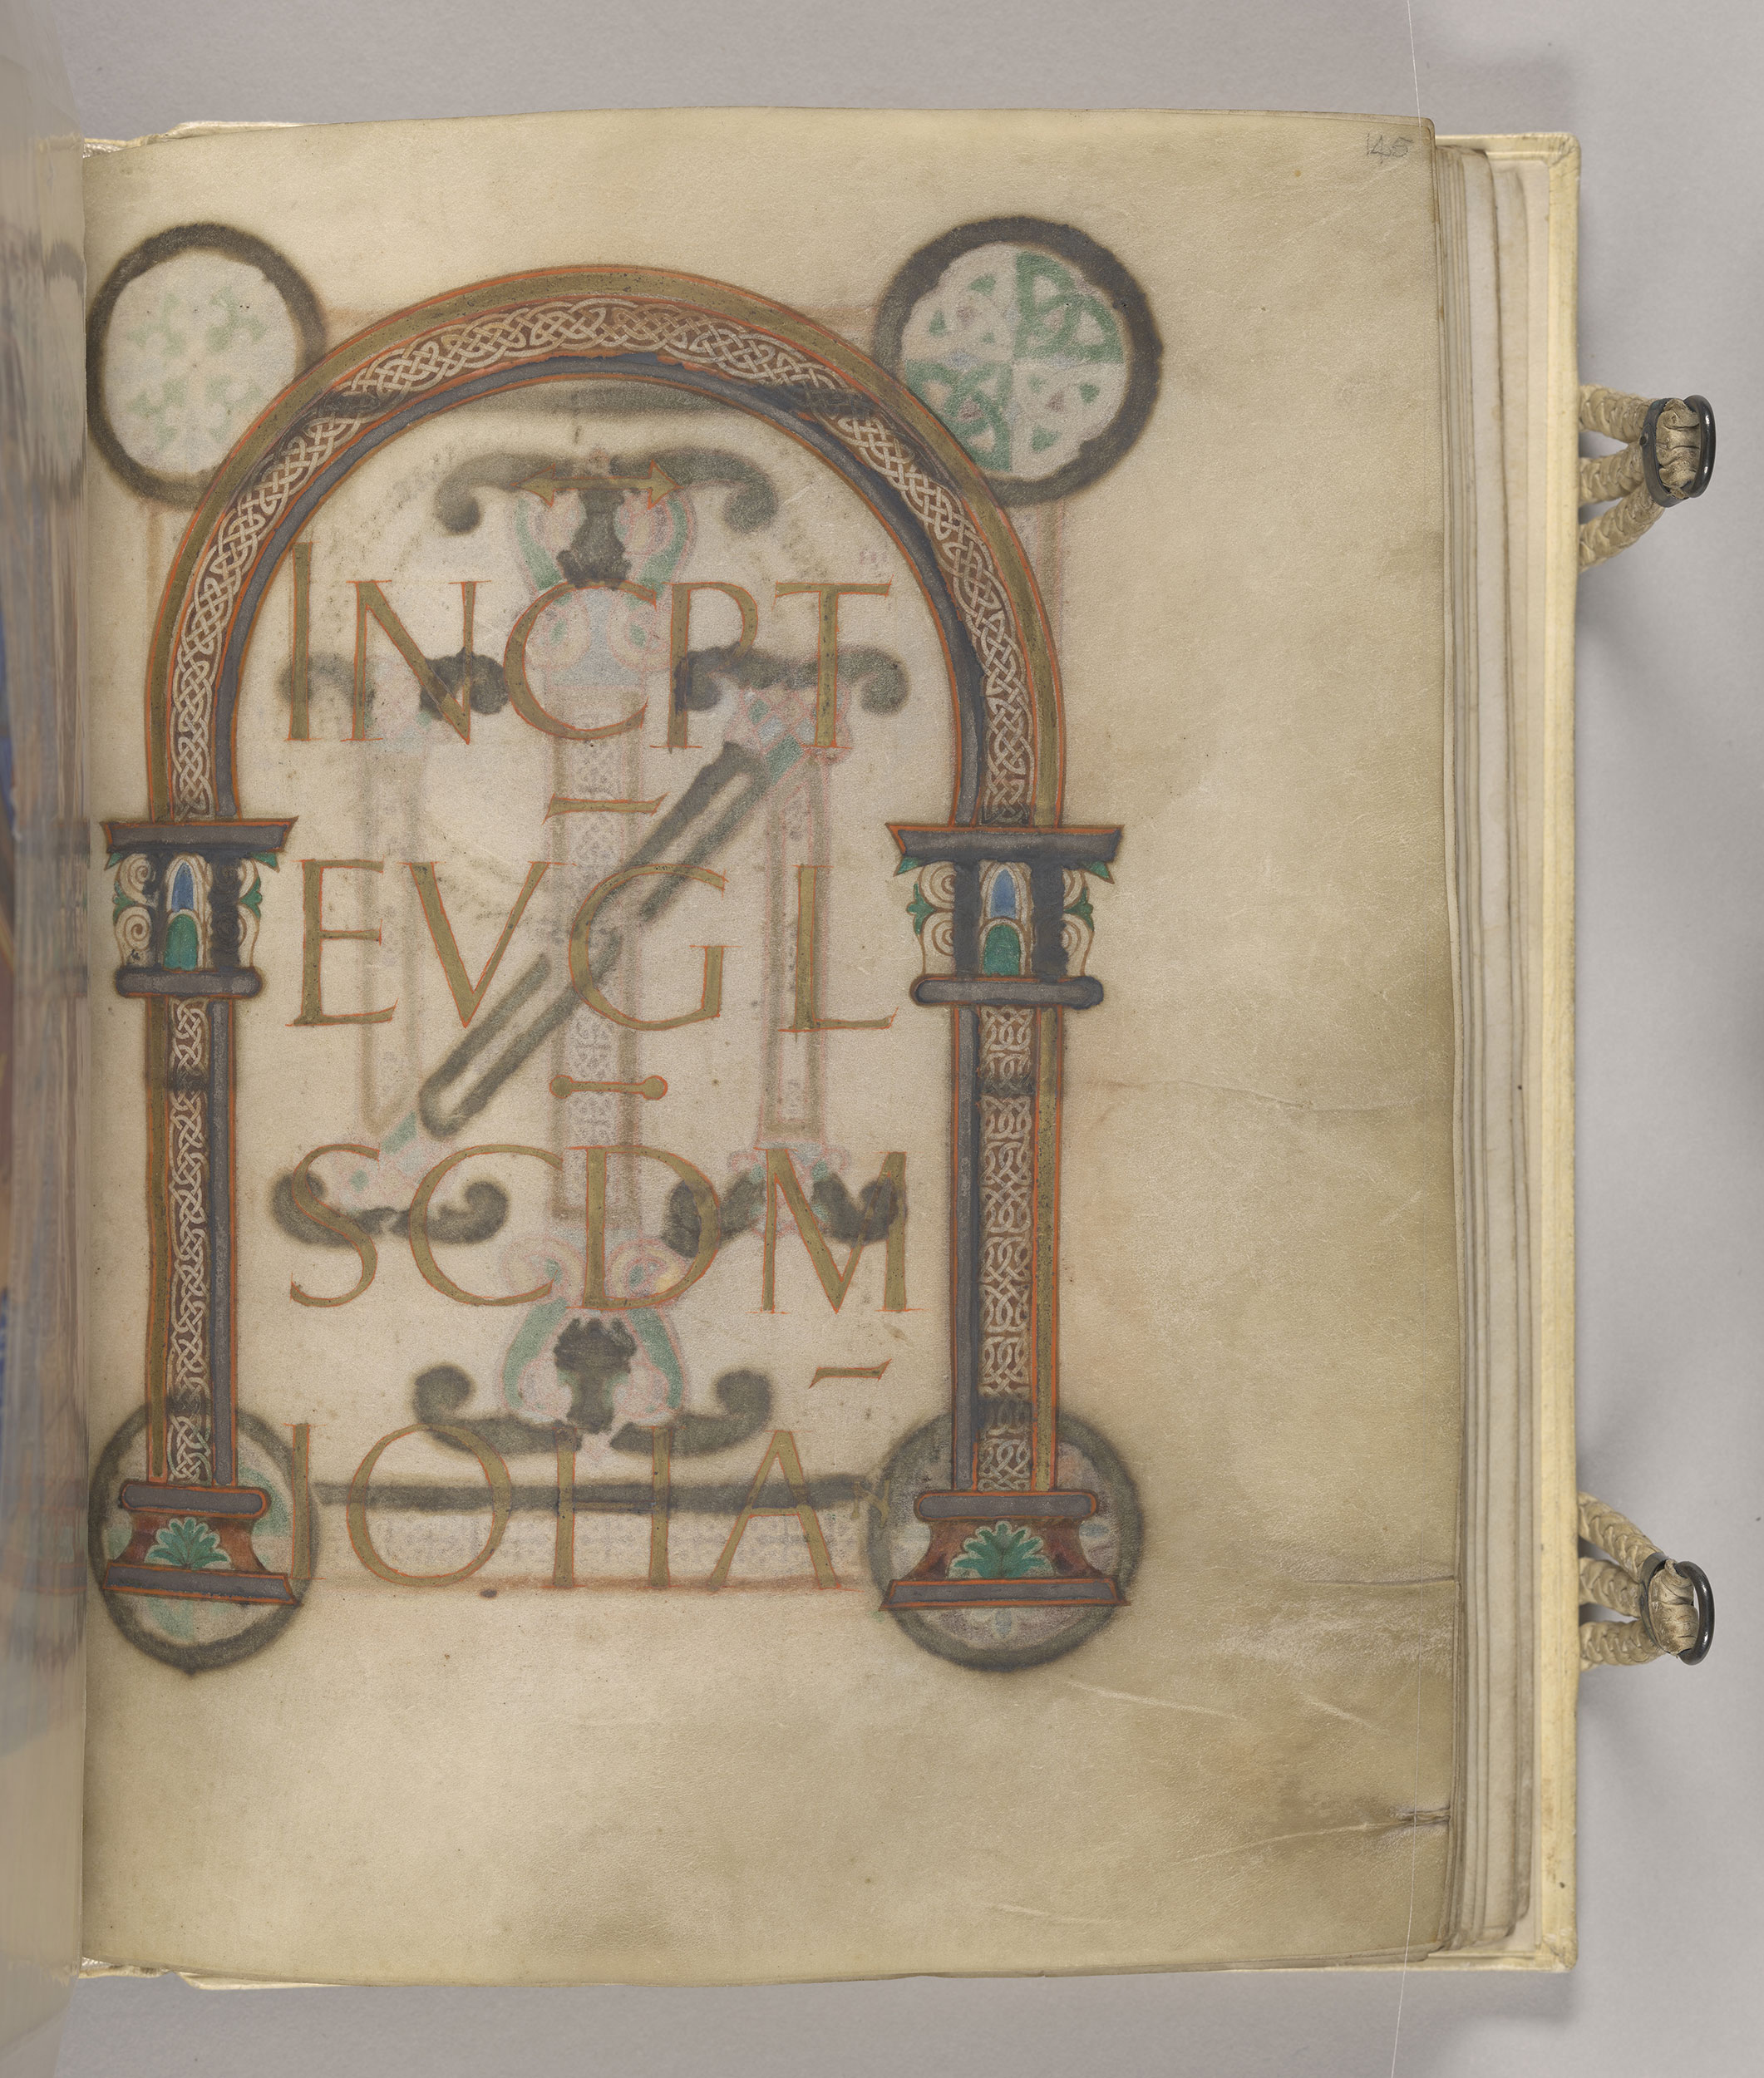 145
INCPT
EVGL
SCDM
IOHAN